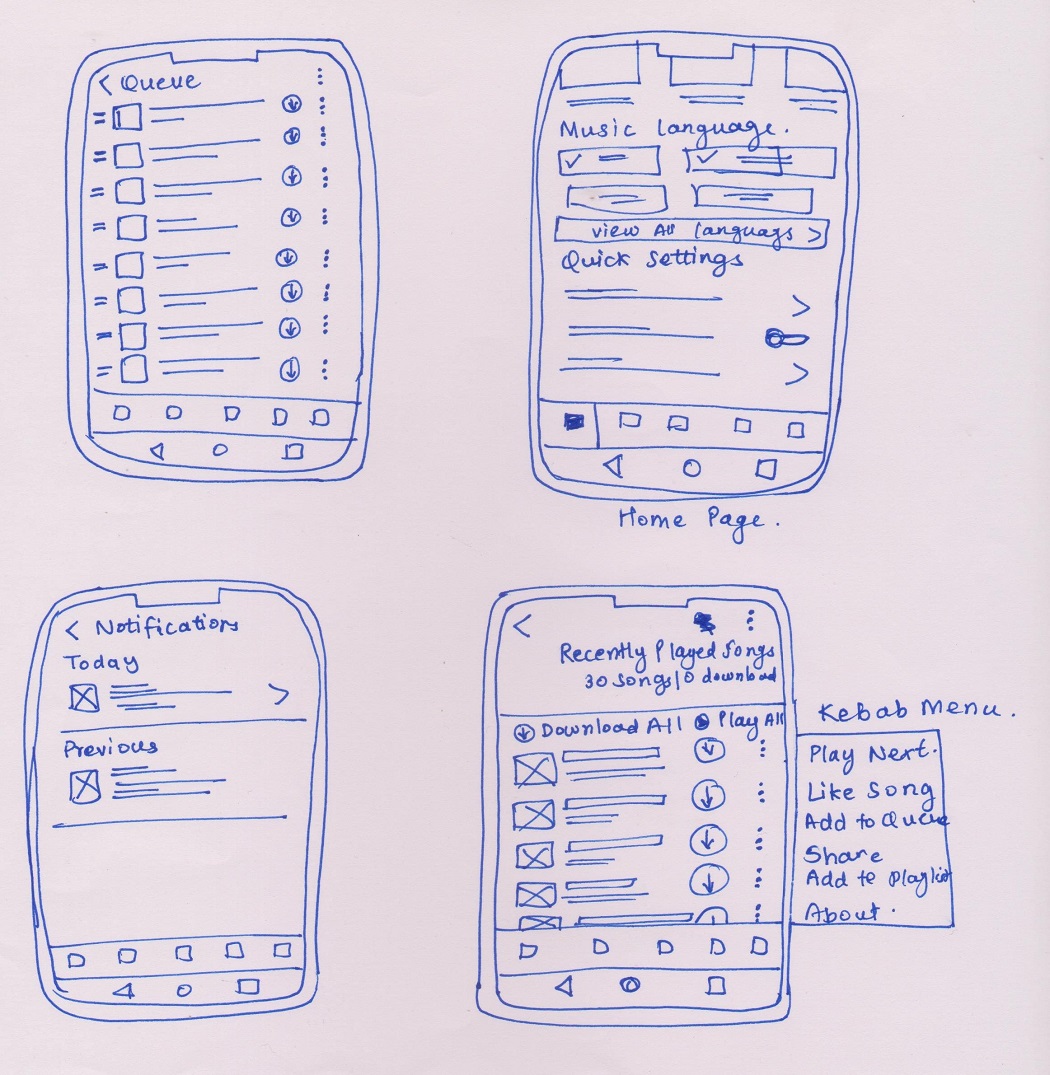 Queue
Music language.
view All languags
Quick Settings
Home Page.
Notifications
Today
Previous
Recently Played Songs
30 Songs|0 download
Download All
Play All
Kebab Menu.
Play Next.
Like Song
Add to Queue
Share
Add to Playlist
About.